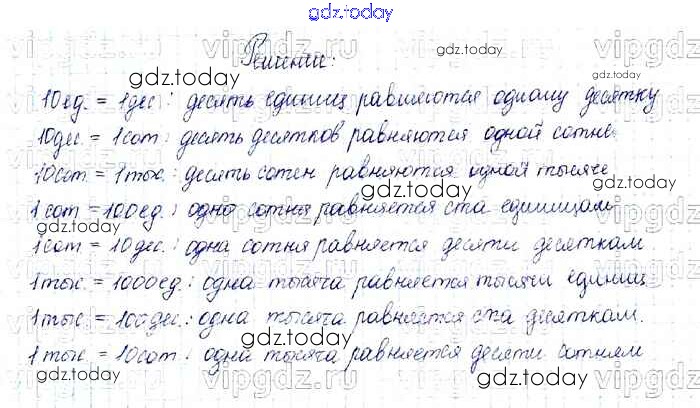 gdz.today
Решение:
10ед. = 1дес.: десять единиц равняются одному десятку
10дес. = 1сот: десять десятков равняются одной сотне
10сот. = 1тыс.: десять сотен равняются одной тысяче
1сот = 100ед.: одна сотня равняется ста единицам
1сот = 10дес.: одна сотня равняется десяти десяткам.
1тыс. = 1000ед.: одна тысяча равняется тысячи единиц
1тыс. = 100дес.: одна тысяча равняется ста десяткам.
1тыс. = 10сот.: одна тысяча равняется десяти сотням
gdz.today
gdz.today
gdz.today
gdz.today
gdz.today
gdz.today
gdz.today
gdz.today
vipgdz.ru
vipgdz.ru
vipgdz.ru